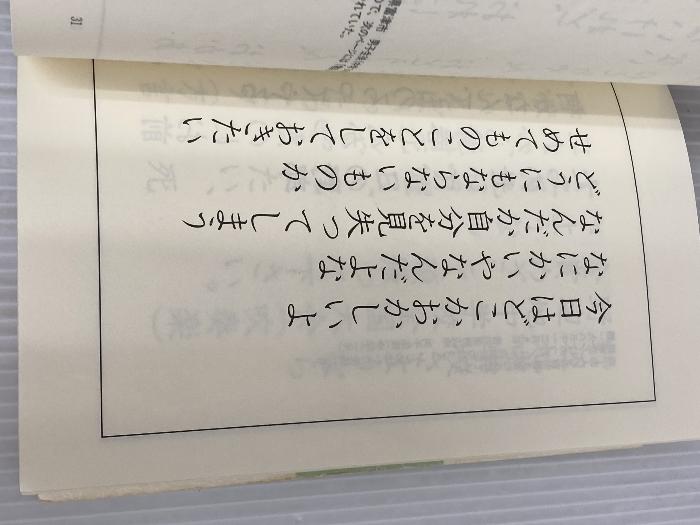 今日はどこかおかしいよ
なにかいやなんだよな
なんだか自分を見失ってしまう
どうにもならないものか
せめてものことをしておきたい
れていた。
31